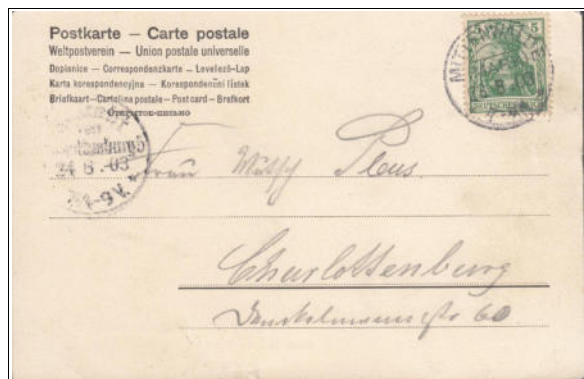 Postkarte — Carte postale
Weltpostverein — Union postale universelle
Dopisnice — Correspondenzkarte — Levelező-Lap
Karta korespondencyjna — Korespondenční lístek
Briefkaart — Cartolina postale — Post card — Brefkort
Открытое письмо
5
MITTENWALDE
DEUTSCHES REICH
24 8.-03
Frau
Charlottenburg
60